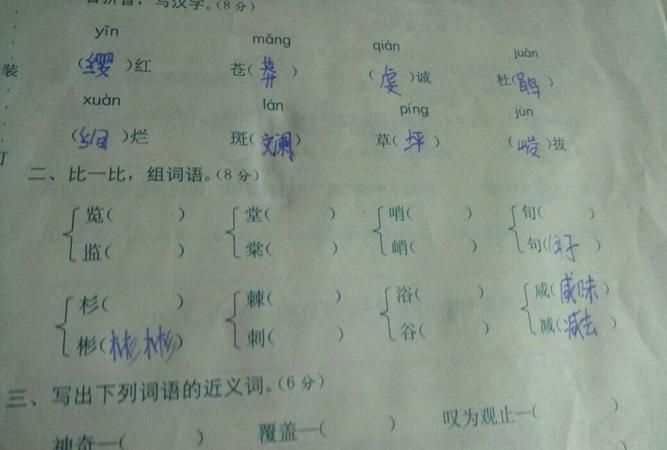 看拼音，写汉字。(8分)
yīn mǎng qián juān
(缨)红 苍(莽) (虔)诚 杜(鹃)
xuàn lán píng jùn
(绚)烂 斑(斓) 草(坪) (峻)拔
装
订
二、比一比，组词语。(8分)
览( ) 堂( ) 哨( ) 旬( )
监( ) 棠( ) 峭( ) 句(句子)
杉( ) 棘( ) 浴( ) 咸(咸味)
彬(彬彬) 刺( ) 谷( ) 减(减去)
三、写出下列词语的近义词。(6分)
神奇—( ) 覆盖—( ) 叹为观止—( )